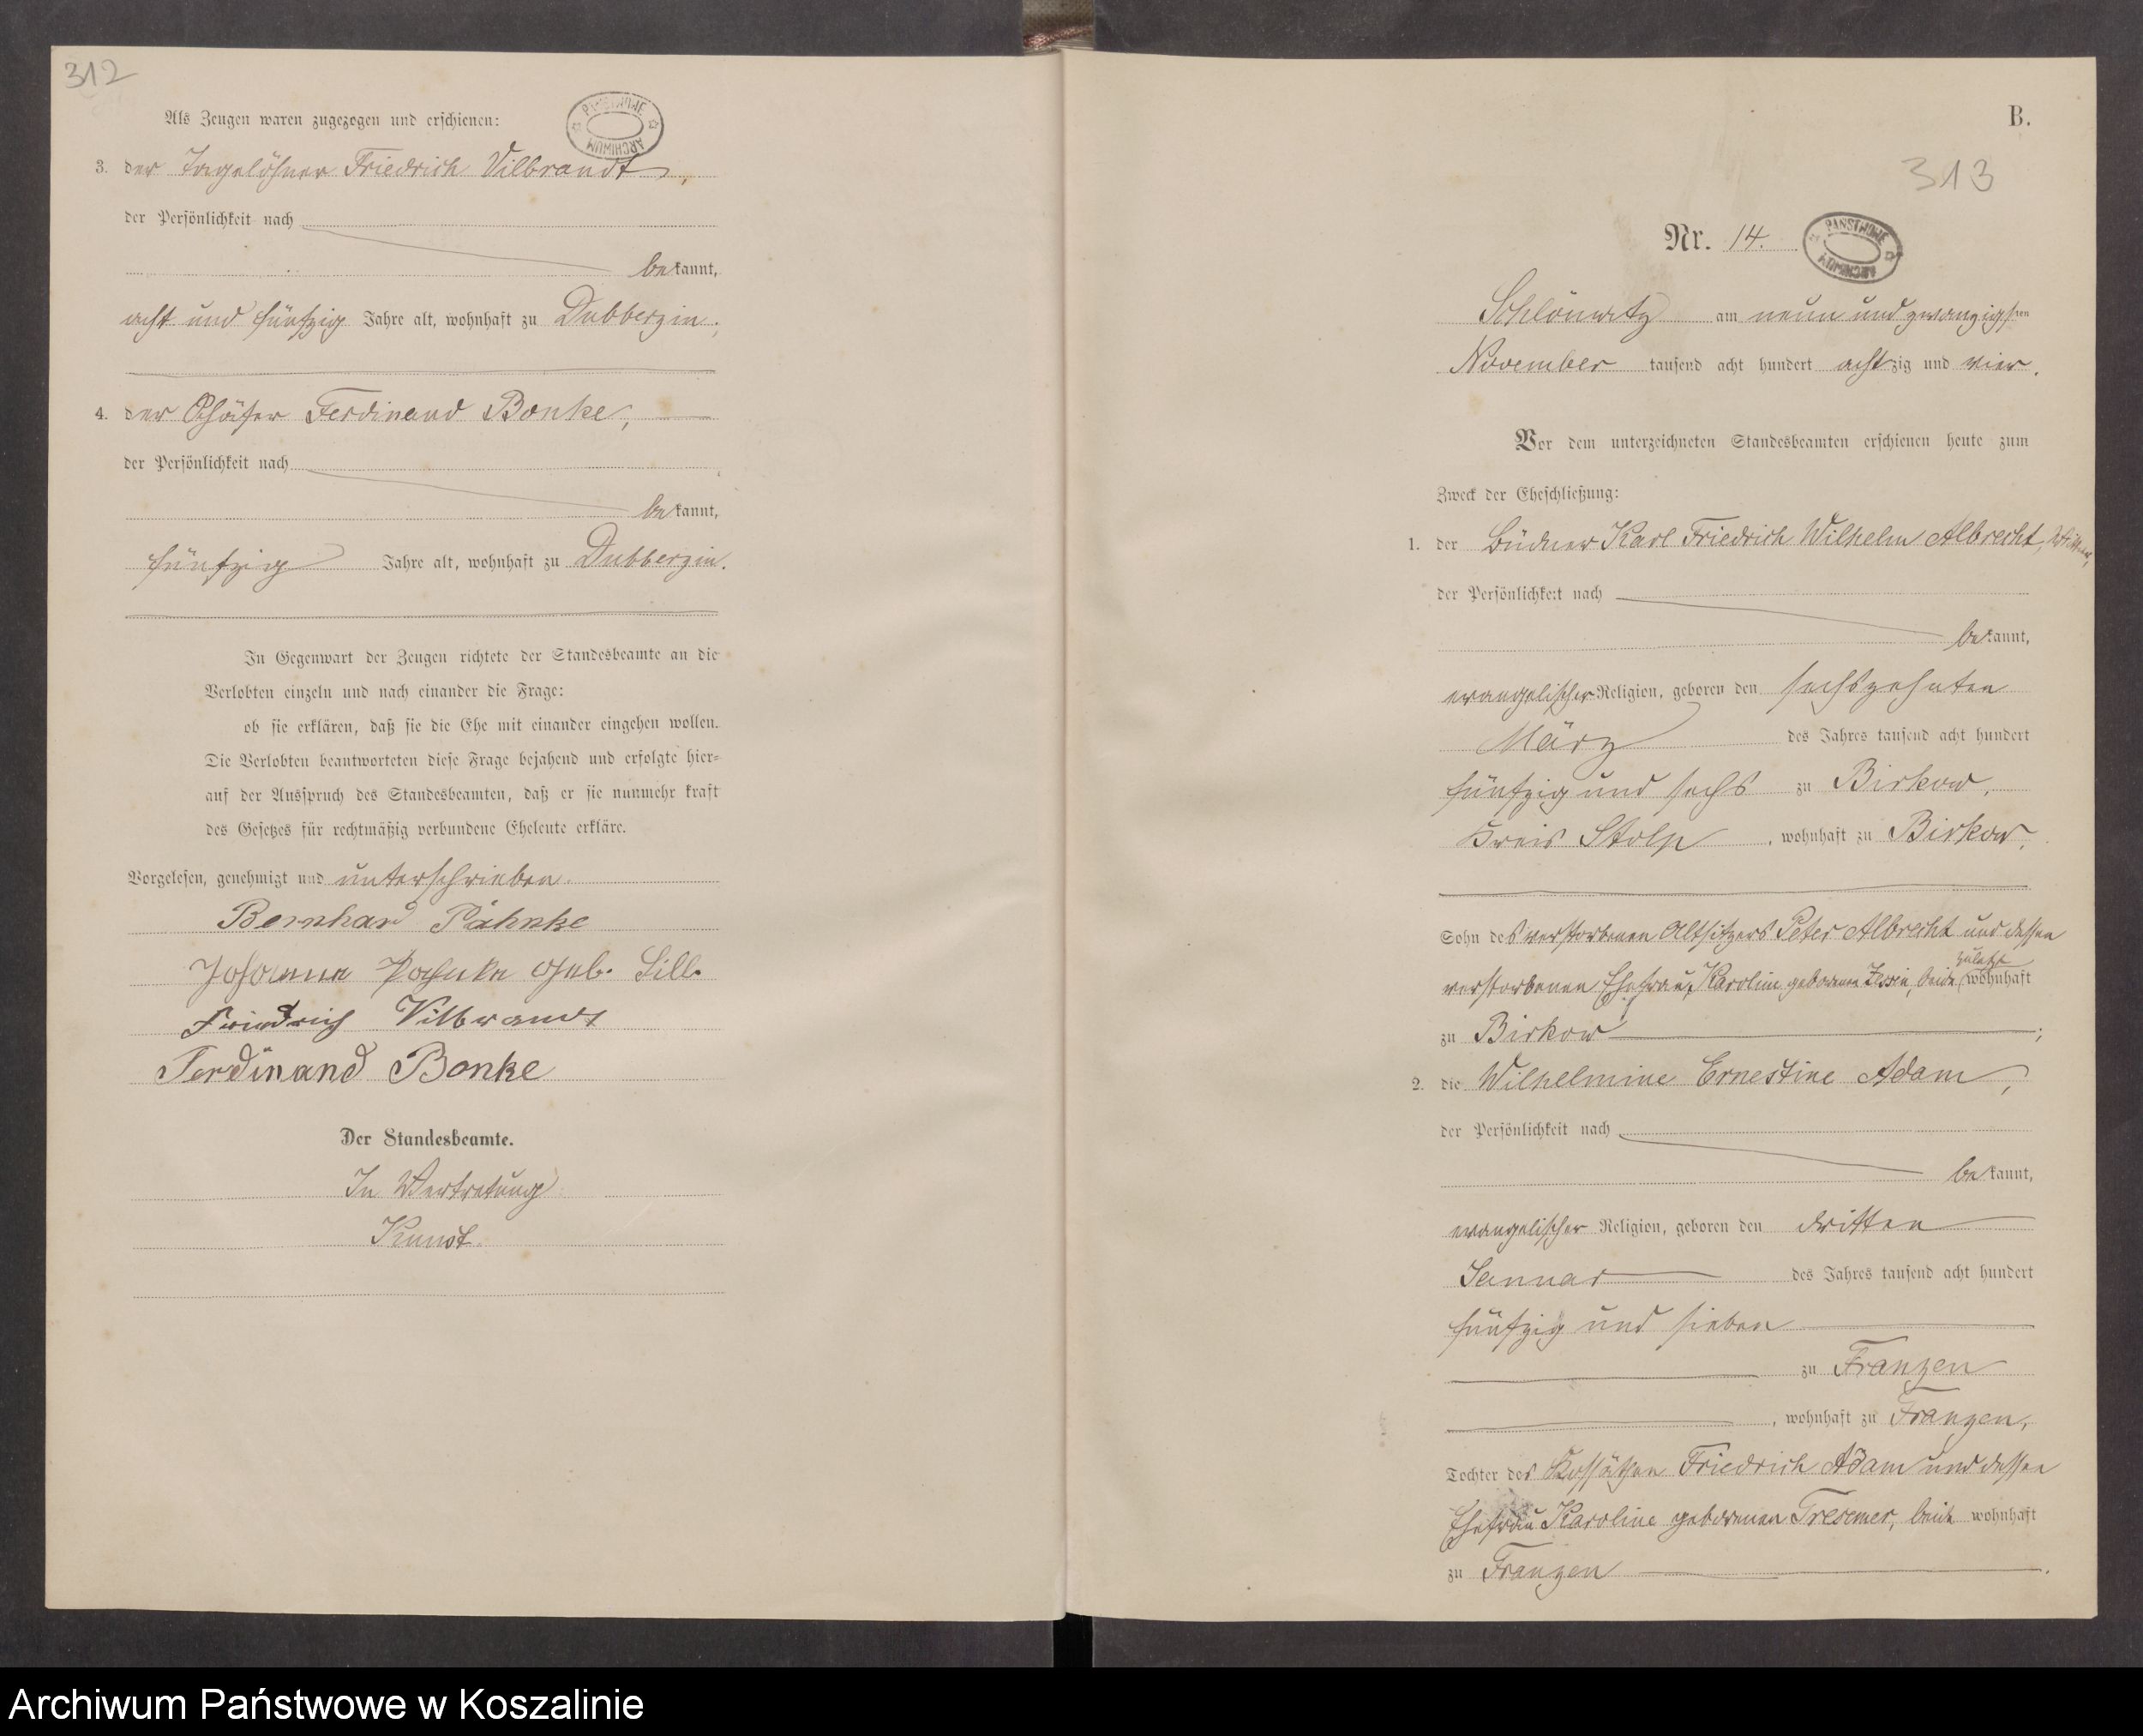 312
Als Zeugen waren zugezogen und erschienen:
PAŃSTWOWE ARCHIWUM
3. der Tagelöhner Friedrich Vilbrandt,
der Persönlichkeit nach
bekannt,
acht und fünfzig Jahre alt, wohnhaft zu Dubberzin;
4. der Schäfer Ferdinand Bonke,
der Persönlichkeit nach
bekannt,
fünfzig Jahre alt, wohnhaft zu Dubberzin.
In Gegenwart der Zeugen richtete der Standesbeamte an die
Verlobten einzeln und nach einander die Frage:
ob sie erklären, daß sie die Ehe mit einander eingehen wollen.
Die Verlobten beantworteten diese Frage bejahend und erfolgte hier-
auf der Ausspruch des Standesbeamten, daß er sie nunmehr kraft
des Gesetzes für rechtmäßig verbundene Eheleute erkläre.
Vorgelesen, genehmigt und unterschrieben.
Bernhard Pähnke
Johanne geb. Sill.
Friedrich Vilbrandt
Ferdinand Bonke
Der Standesbeamte.
In Vertretung
Kunst.
B.
313
Nr. 14.
PAŃSTWOWE ARCHIWUM
Schlönwitz am neun und zwanzigsten
November tausend acht hundert achtzig und vier.
Vor dem unterzeichneten Standesbeamten erschienen heute zum
Zweck der Eheschließung:
1. der Büdner Karl Friedrich Wilhelm Albrecht,
der Persönlichkeit nach
bekannt,
evangelischer Religion, geboren den sechszehnten
März des Jahres tausend acht hundert
fünfzig und sechs zu Birkow,
Kreis Stolp, wohnhaft zu Birkow,
Sohn des verstorbenen Altsitzers Peter Albrecht und dessen
zuletzt
verstorbenen Ehefrau, Karoline geborenen beide wohnhaft
zu Birkow;
2. die Wilhelmine Ernestine Adam,
der Persönlichkeit nach
bekannt,
evangelischer Religion, geboren den dritten
Januar des Jahres tausend acht hundert
fünfzig und sieben
zu Franzen
, wohnhaft zu Franzen,
Tochter des Kossäthen Friedrich Adam und dessen
Ehefrau Karoline geborenen beide wohnhaft
zu Franzen.
Archiwum Państwowe w Koszalinie